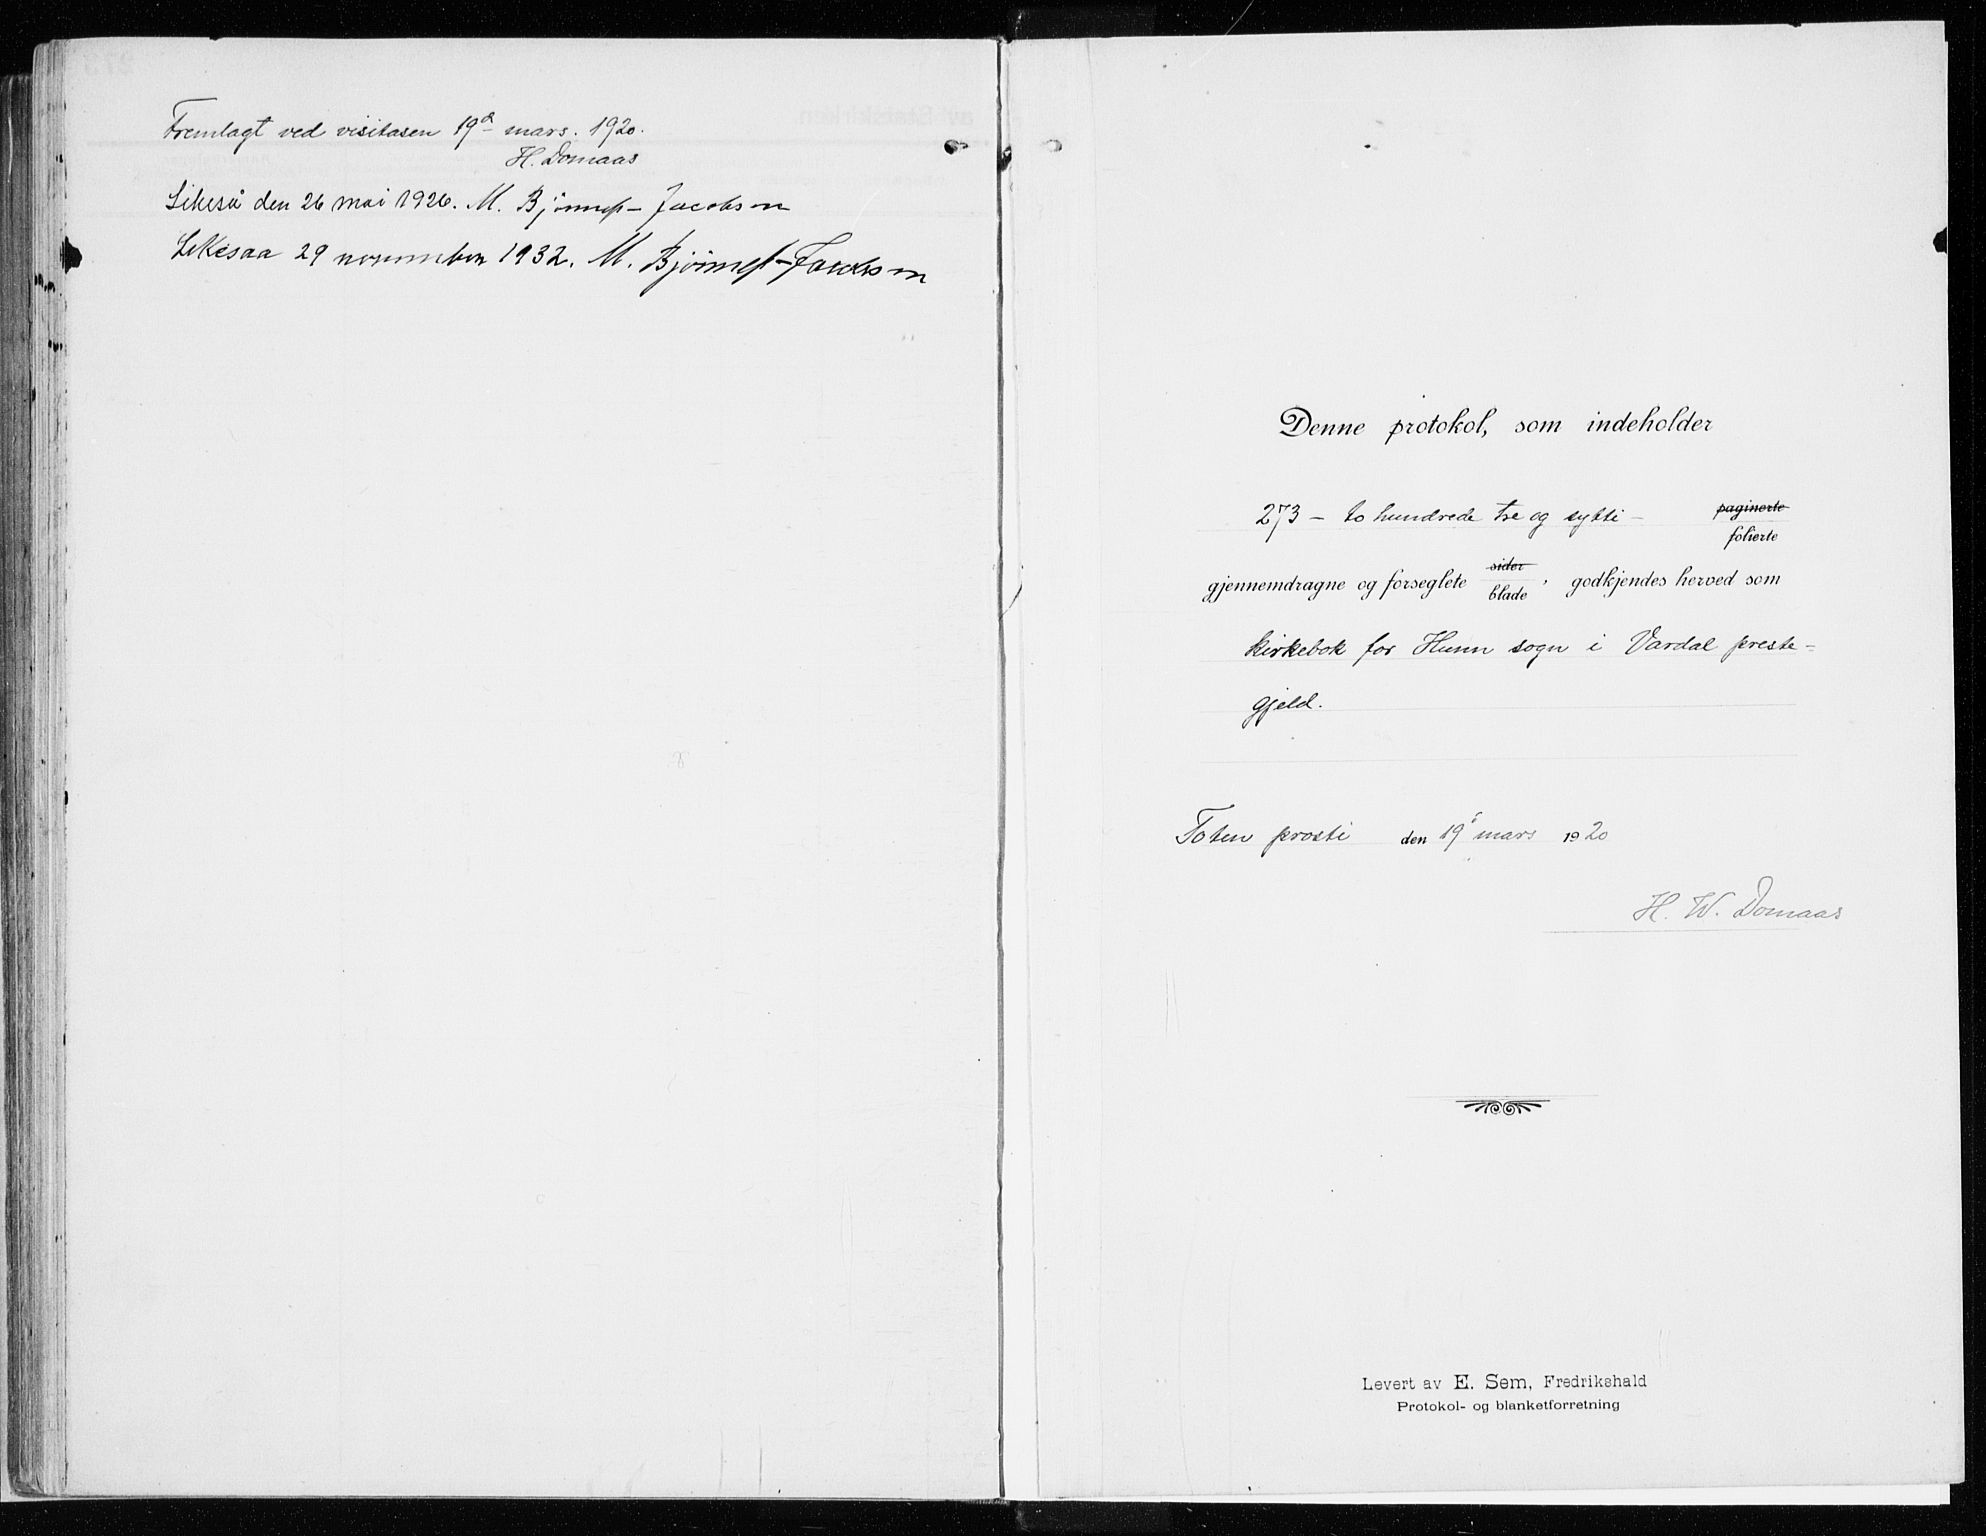 Fremlagt ved visitasen 19de mars. 1920.
H. Domaas
Likeså den 26 mai 1926. M. Bjønnes-Jacobsen
Likesaa 29 november 1932. M. Bjønnes-Jacobsen
Denne protokol, som indeholder
273 – to hundrede tre og sytti – paginerte
folierte
gjennemdragne og forseglete sider
blade, godkjendes herved som
kirkebok for Hunn sogn i Vardal preste-
gjeld.
Toten prosti den 19 mars 1920
H. W. Domaas
Levert av E. Sem, Fredrikshald
Protokol- og blanketforretning